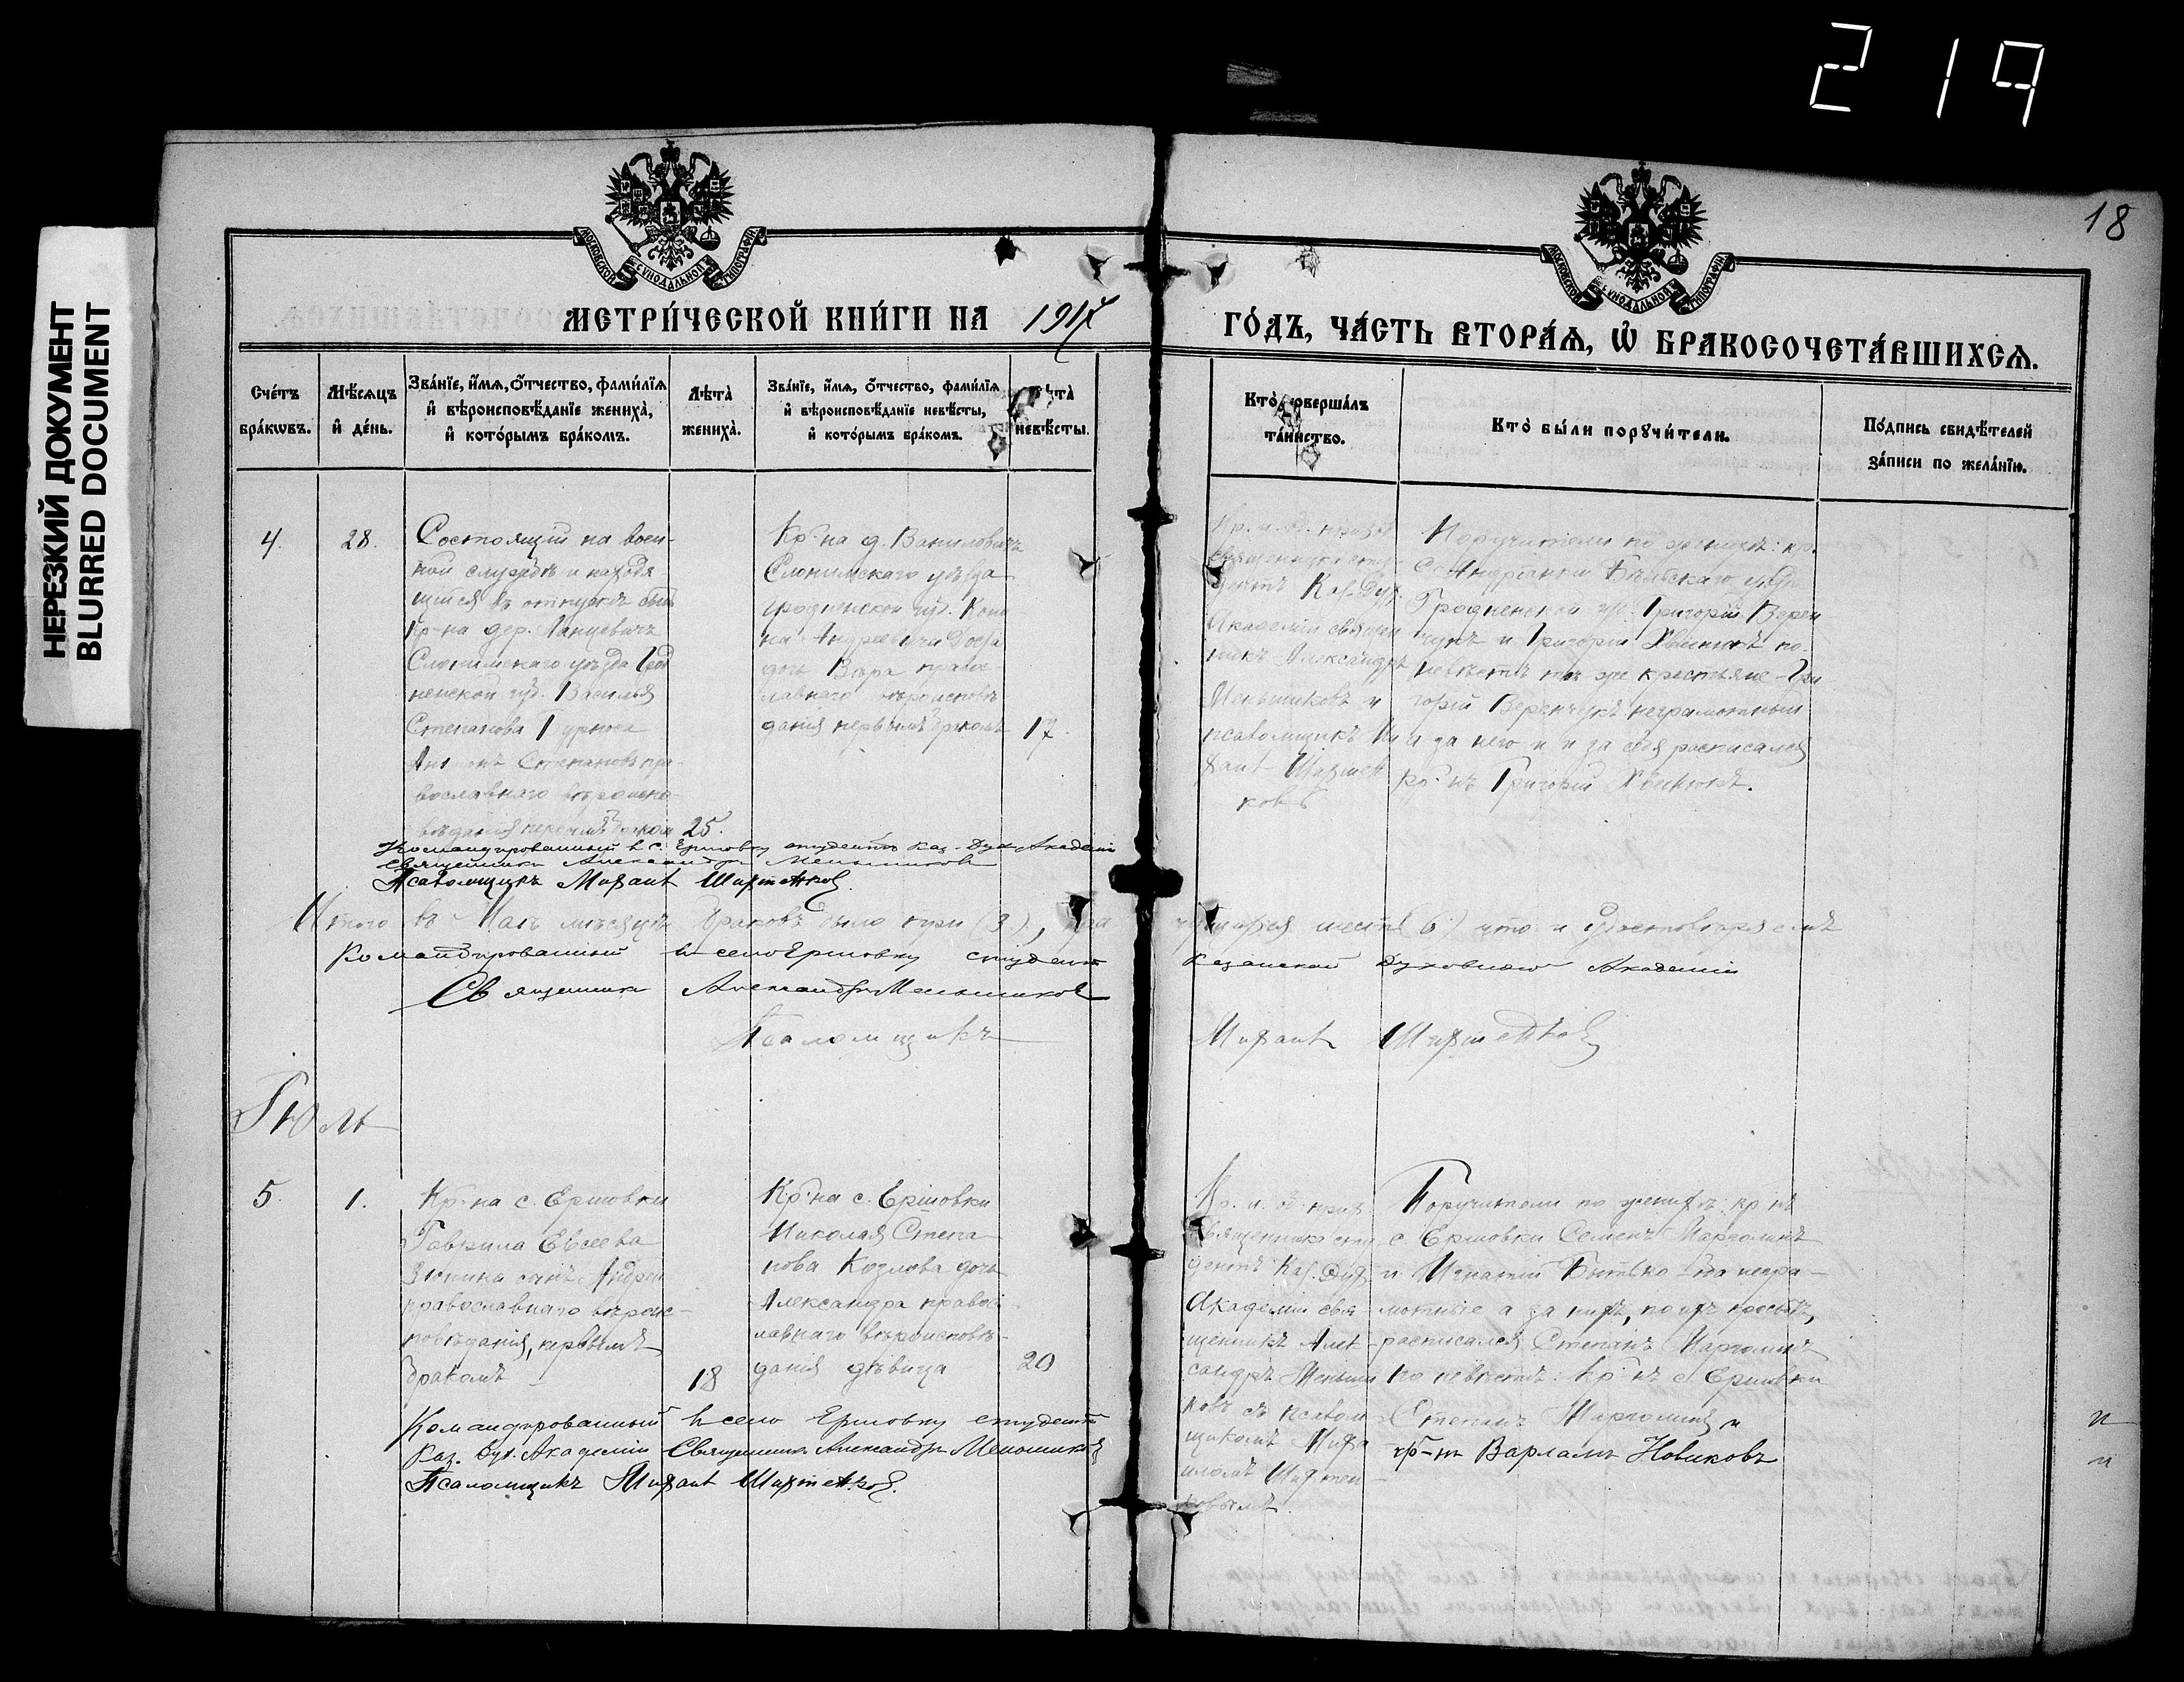 219
НЕРЕЗКИЙ ДОКУМЕНТ
BLURRED DOCUMENT
18
МОСКОВСКОЙ СѴНОДАЛЬНОЙ ТИПОГРАФІИ
МОСКОВСКОЙ СѴНОДАЛЬНОЙ ТИПОГРАФІИ
МЕТРИ́ЧЕСКОЙ КНИ́ГИ НА 1917 ГО́ДЪ, ЧА́СТЬ ВТОРА́Ѧ, Ѡ҆ БРАКОСОЧЕТА́ВШИХСѦ.
Сче́тъ
бра́кѡвъ.
Мѣ́сѧцъ
и҆ де́нь.
Зва́нїе, и҆́мѧ, ѻ҆́тчество, фами́лїѧ
и҆ вѣроисповѣ́данїе жениха̀,
и҆ кото́рымъ бра́комъ.
Лѣ́та̀
жениха̀.
Зва́нїе, и҆́мѧ, ѻ҆́тчество, фами́лїѧ
и҆ вѣроисповѣ́данїе невѣ́сты,
и҆ кото́рымъ бра́комъ.
невѣ́сты.
Кто̀ соверша́лъ
та́инство.
Кто̀ бы́ли порꙋчи́тели.
По́дпись свидѣ́телей
за́писи по жела́нїю.
4.
28.
Состоящій на воен-
ной службѣ и находя-
щійся въ отпускѣ сынъ
Кр-на дер. Ланцевичъ
Слонимскаго уѣзда Грод
ненской губ. Василья
Степанова
Степановъ пра-
вославнаго вѣроиспо-
вѣданія первымъ бракомъ 25.
Кр-на д. Ваниловичъ
Слонимскаго уѣзда
Гродненской губ.
на Андреевича
дочь Вѣра правос-
лавнаго вѣроисповѣ
данія первымъ бракомъ 17.
Кр. и. б.
священника сту-
дентъ Каз. Дух.
Академіи священ
никъ Александръ
Меньшиковъ и
псаломщикъ Ми
хаил
ковъ
Поручители по женихѣ: кр.
с. Бѣльскаго уѣзда
Гродненской губ. Григорій Верен
чукъ и Григорій по
невѣстѣ тѣ же крестьяне Гри
горій Веренчукъ неграмотный
и за него и за себя расписался
кр-нъ Григорій
Командированный въ с. Ершовку студентъ Каз. Дух. Академіи
священникъ Александръ Меньшиковъ
Псаломщикъ Михаил
Итого въ Маѣ мѣсяцѣ браковъ было три (3), лица
шесть (6) что и удостовѣряемъ
Командированный въ село Ершовку студентъ Казанской Духовной Академіи
Священникъ Александръ Меньшиковъ
Псаломщикъ Михаил
Іюль
5.
1.
Кр-на с. Ершовки
Гаврила Евсеева
Зюпина сынъ Андрей
православнаго вѣроис-
повѣданія, первымъ
бракомъ 18
Кр-на с. Ершовки
Николая Степа-
нова Козлова дочь
Александра правос-
лавнаго вѣроисповѣ-
данія дѣвица 20
Кр. и. б.
священника сту-
дентъ Каз. Дух.
Академіи свя-
щенникъ Алек-
сандръ Меньши
ковъ съ псалом-
щикомъ Миха
иломъ
ковымъ.
Поручители по женихѣ: кр-нъ
с. Ершовки Семенъ Марголинъ
и Игнатій оба негра-
мотные а за нихъ, по ихъ просьбѣ,
расписался Степанъ Марголинъ
по невѣстѣ: кр-нъ с. Ершовки
Степанъ Марголинъ и
кр-нъ Варламъ Новиковъ
Командированный въ село Ершовку студентъ
Каз. Дух. Академіи Священникъ Александръ Меньшиковъ
Псаломщикъ Михаил